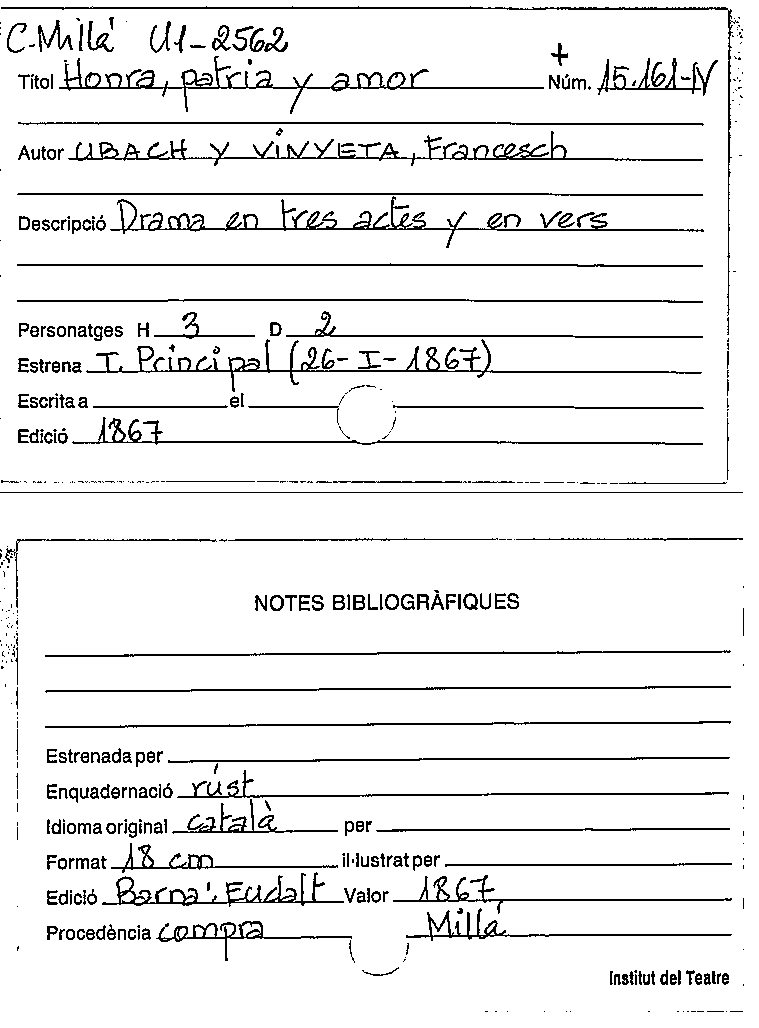 C-Millá U1-2562
+
Títol Honra, patria y amor Núm. 15.161-IV
Autor UBACH Y VINYETA, Francesch
Descripció Drama en tres actes y en vers
Personatges H 3 D 2
Estrena T. Principal (26-I-1867)
Escrita a el
Edició 1867
NOTES BIBLIOGRÀFIQUES
Estrenada per
Enquadernació rúst
Idioma original català per
Format 18 cm il·lustrat per
Edició Barna: Eudalt Valor 1867
Procedència compra Millá
Institut del Teatre